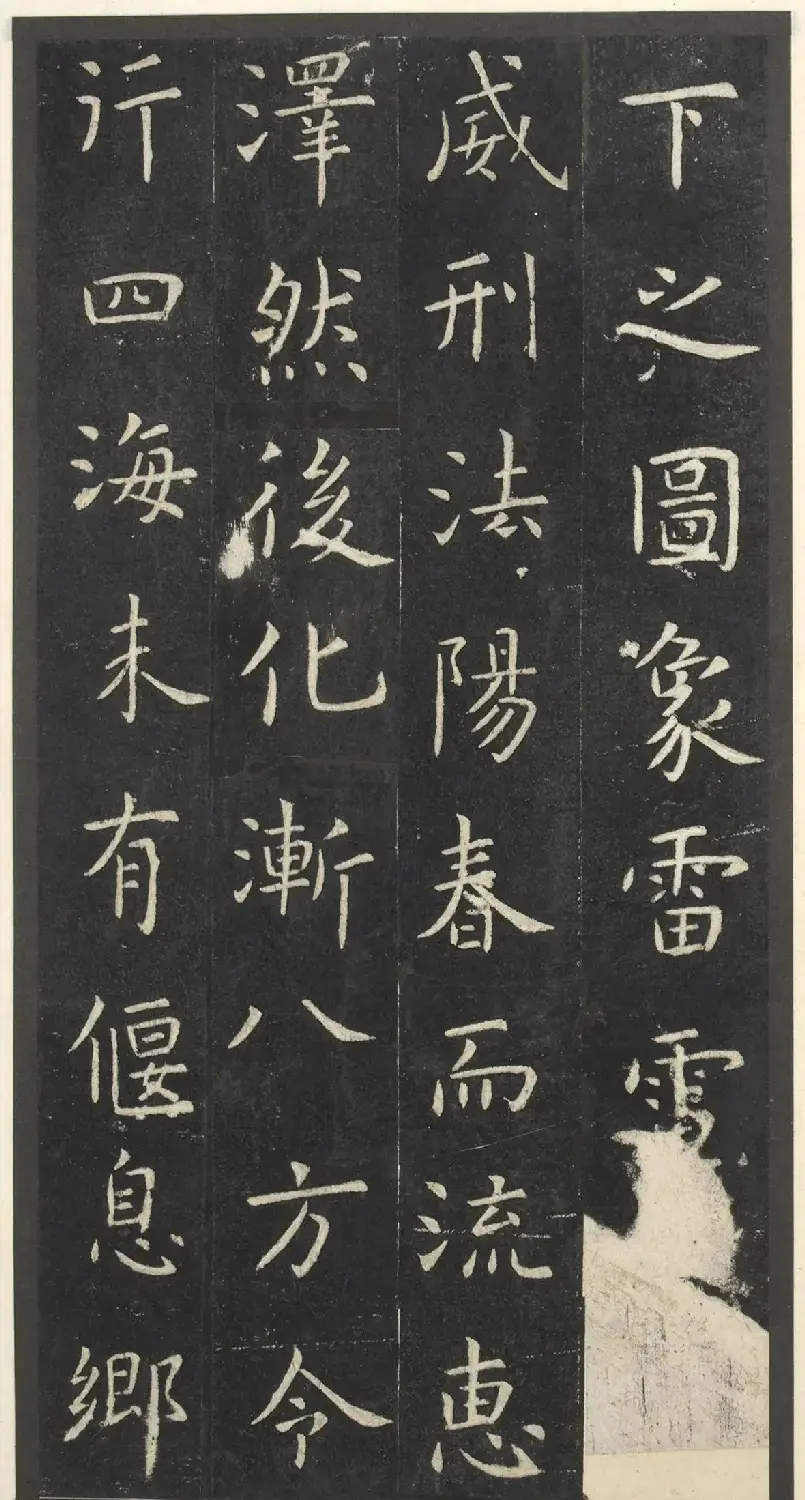 下之圖象雷
威刑法陽春而流恵
澤然後化漸八方令
行四海未有偃息鄉